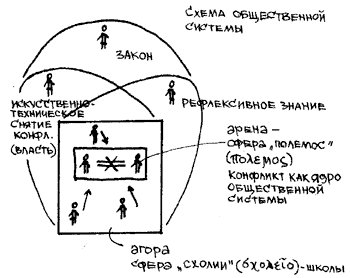 СХЕМА ОБЩЕСТВЕННОЙ
СИСТЕМЫ
ЗАКОН
ИСКУССТВЕННО-
ТЕХНИЧЕСКОЕ
СНЯТИЕ
КОНФЛ.
(ВЛАСТЬ)
РЕФЛЕКСИВНОЕ ЗНАНИЕ
АРЕНА –
СФЕРА „ПОЛЕМОС"
(ПОЛЕМОС)
КОНФЛИКТ КАК ЯДРО
ОБЩЕСТВЕННОЙ
СИСТЕМЫ
АГОРА
СФЕРА „СХОЛИИ" (σχολεῖο)-ШКОЛЫ